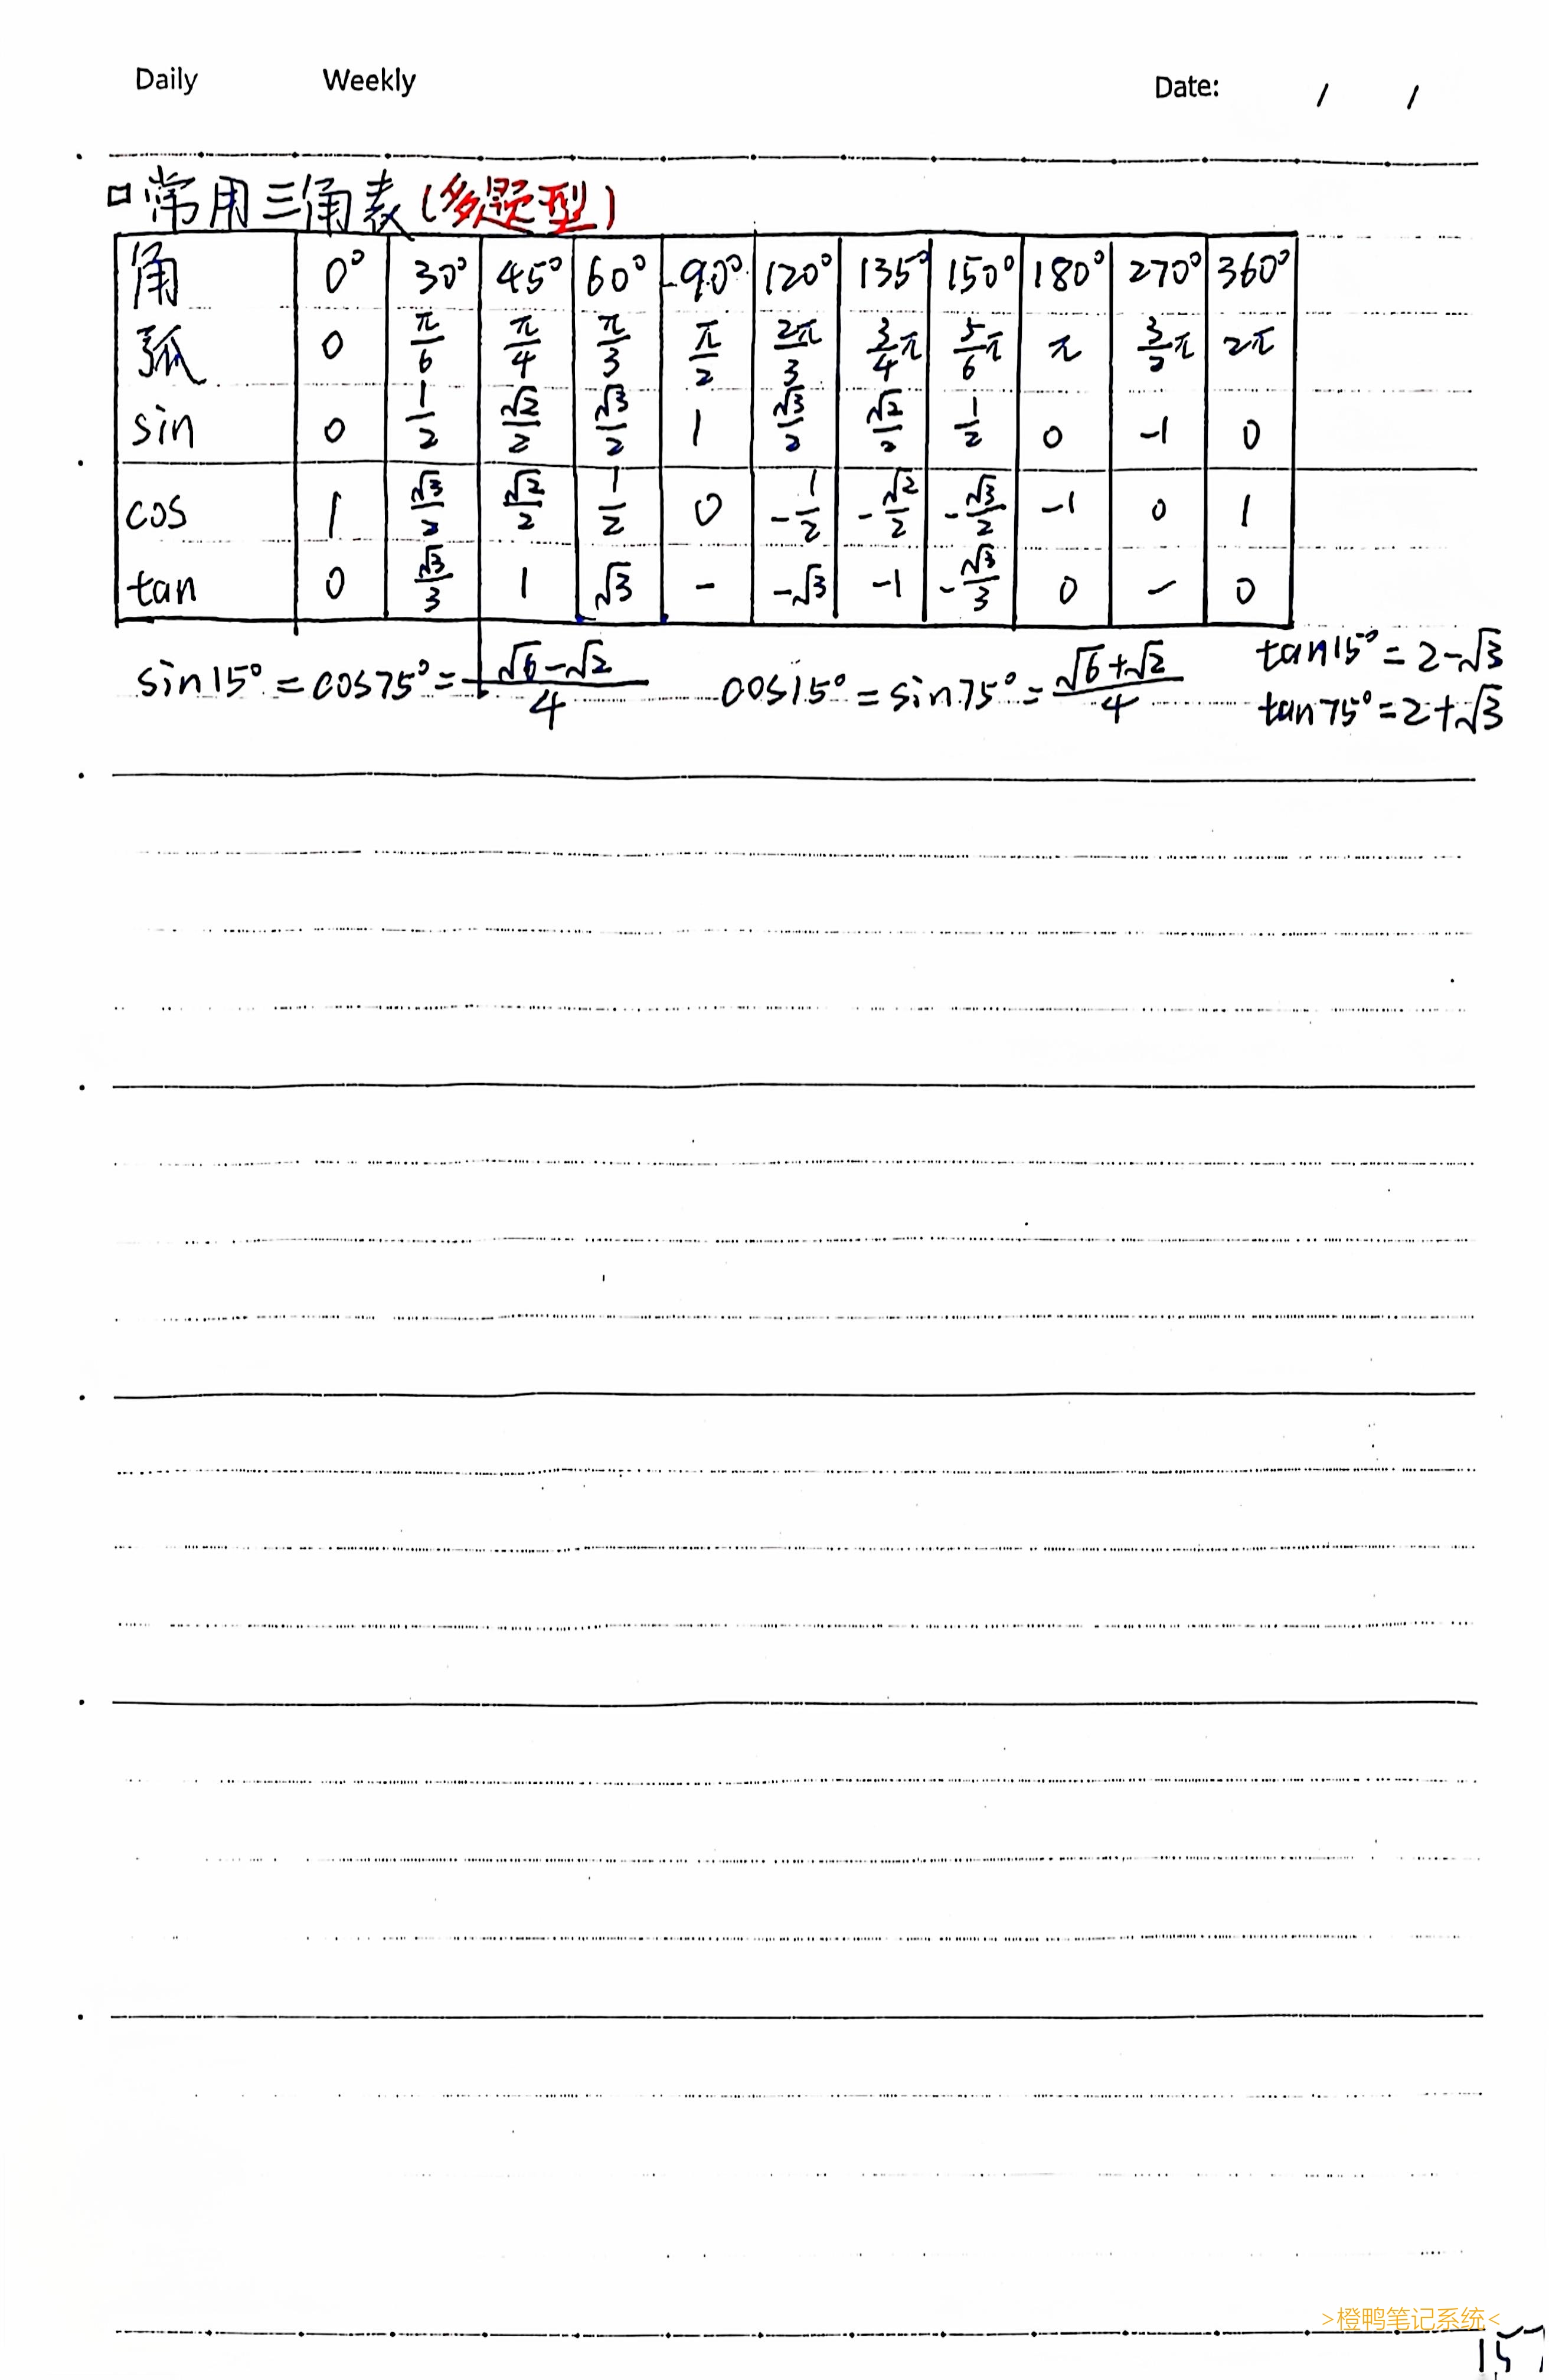 Daily Weekly Date: / /
口常用三角表(多题型)
角 0° 30° 45° 60° 90° 120° 135° 150° 180° 270° 360°
弧 0 π/6 π/4 π/3 π/2 2π/3 3/4π 5/6π π 3/2π 2π
sin 0 1/2 √2/2 √3/2 1 √3/2 √2/2 1/2 0 -1 0
cos 1 √3/2 √2/2 1/2 0 -1/2 -√2/2 -√3/2 -1 0 1
tan 0 √3/3 1 √3 - -√3 -1 -√3/3 0 - 0
sin15° = cos75° = (√6-√2)/4 cos15° = sin75° = (√6+√2)/4 tan15° = 2-√3
tan75° = 2+√3
>橙鸭笔记系统<
157